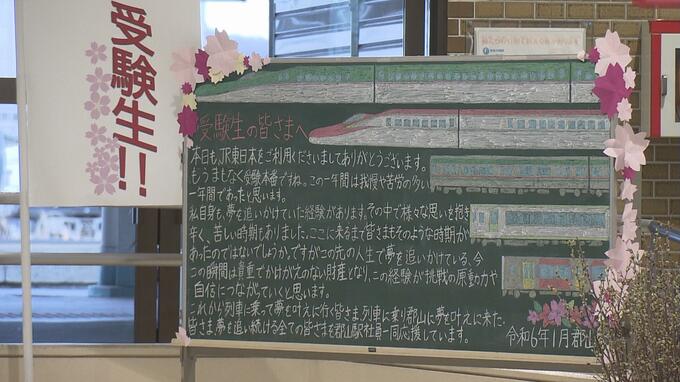 受験生!!
受験生の皆さまへ
本日も、JR東日本をご利用くださいましてありがとうございます。
もうまもなく受験本番ですね。この一年間は我慢や苦労の多い
一年間であったと思います。
私自身も、夢を追いかけていた経験があります。その中で様々な思いを抱き
辛く、苦しい時期もありました。ここに来るまで皆さまもそのような時期が
あったのではないでしょうか。ですがこの先の人生で夢を追いかけている、今
この瞬間は貴重でかけがえのない財産となり、この経験が挑戦の原動力や
自信につながっていくと思います。
これから列車に乗って夢を叶えに行く皆さま、列車に乗り郡山に夢を叶えに来た
皆さま、夢を追い続ける全ての皆さまを郡山駅社員一同応援しています。
令和6年1月郡山